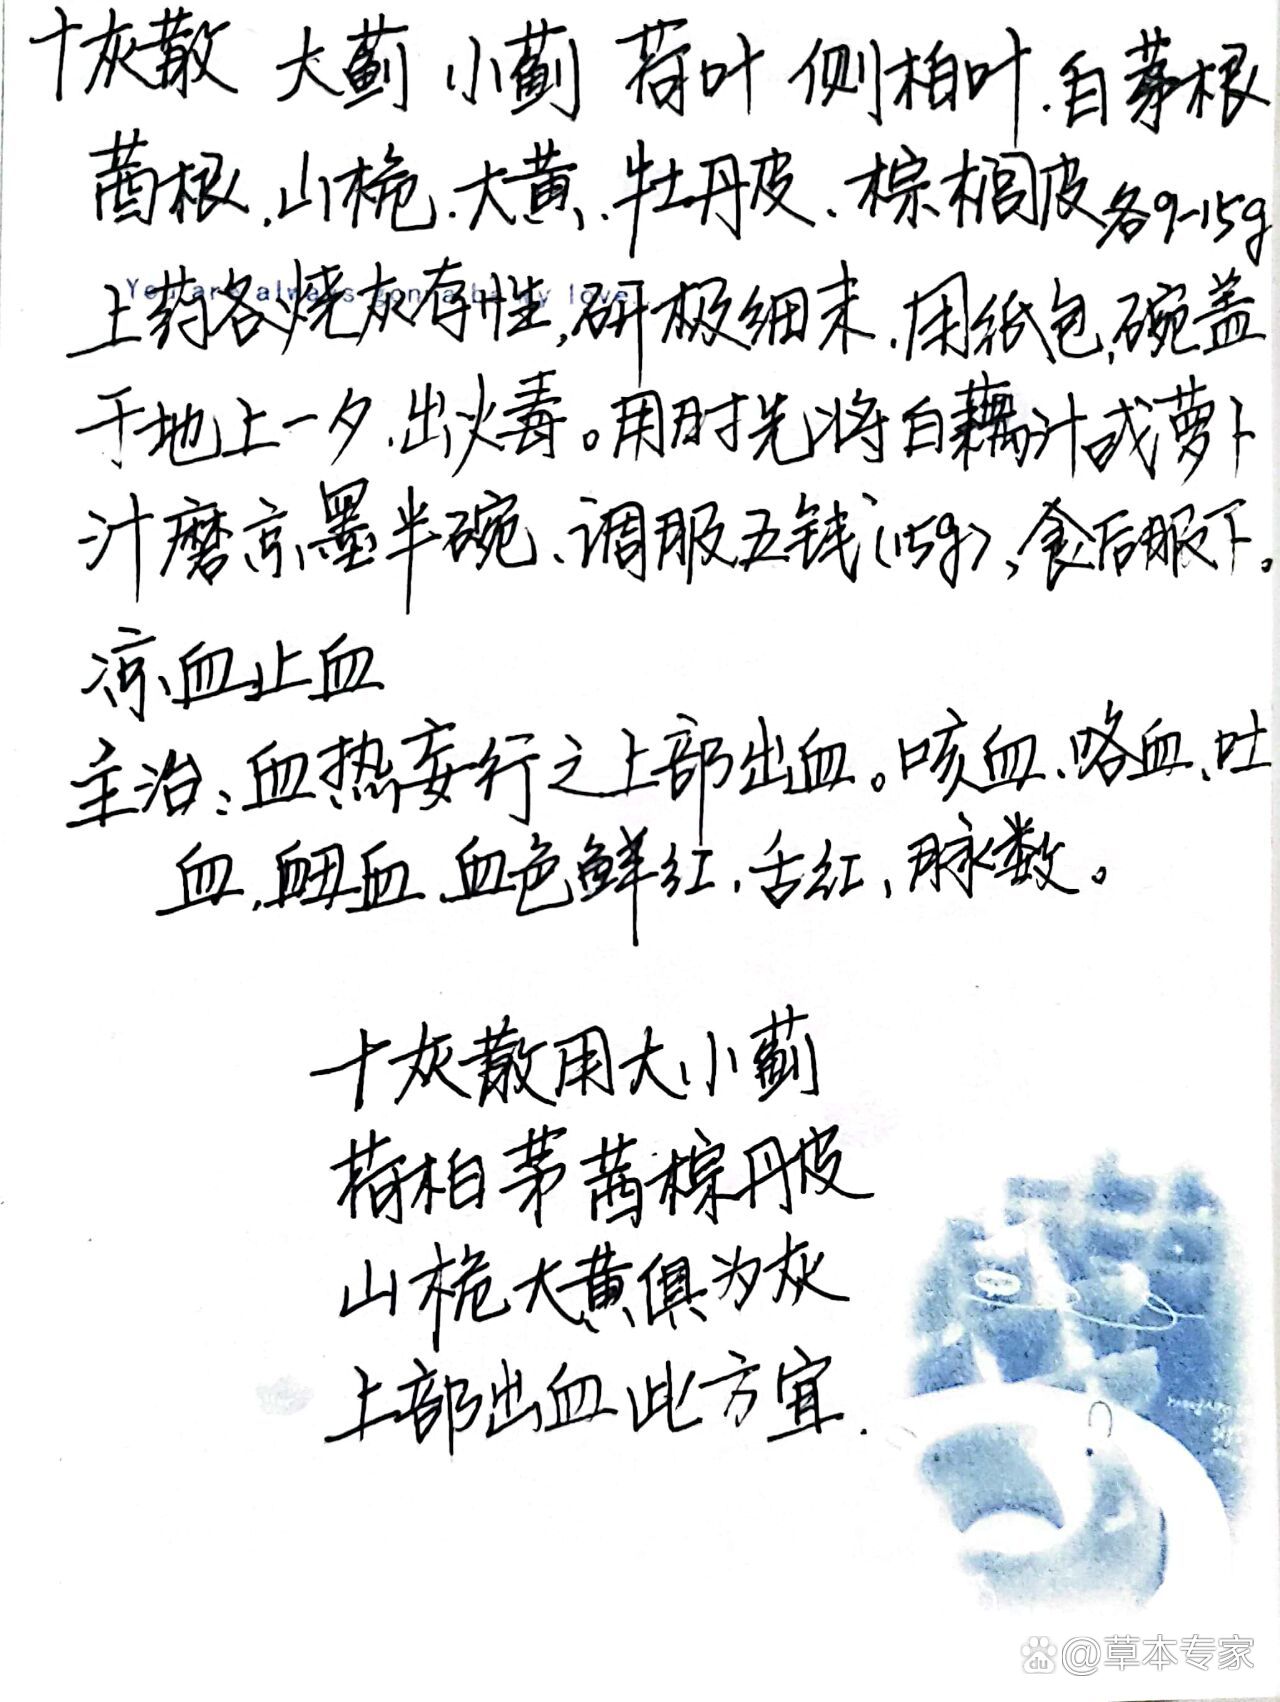 十灰散 大蓟 小蓟 荷叶 侧柏叶.白茅根
茜根.山栀.大黄.牡丹皮.棕榈皮各9-15g
You are always gonna be my love
上药各烧灰存性,研极细末.用纸包,碗盖
于地上一夕.出火毒。用时先将白藕汁或萝卜
汁磨京墨半碗、调服五钱(15g),食后服下。
凉血止血
主治:血热妄行之上部出血。咳血、咯血、吐
血.衄血.血色鲜红.舌红,脉数。
十灰散用大小蓟
荷柏茅茜棕丹皮
山栀大黄俱为灰
上部出血此方宜.
du @草本专家